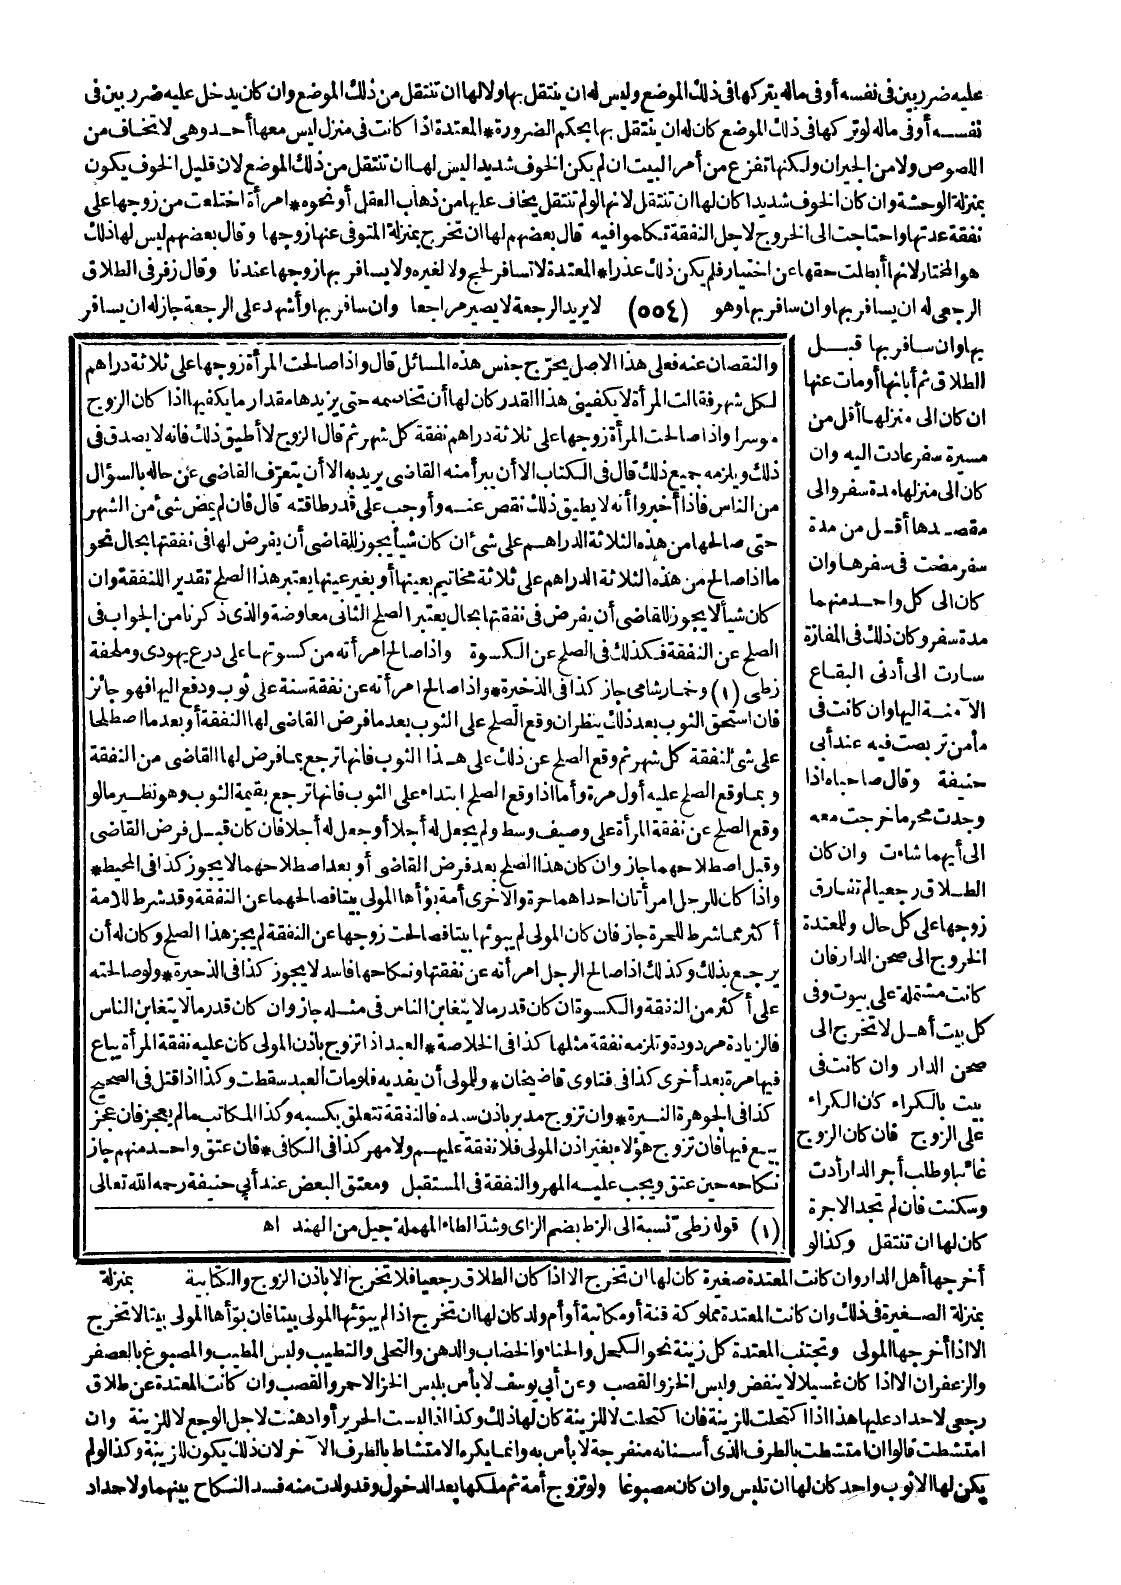 عليه ضرر بين فى نفسه أوفى ماله بتركها فى ذلك الموضع وليس له ان ينتقل بها ولا لها ان تنتقل من ذلك الموضع وان كان يدخل عليه ضرر بين فى
نفسه أوفى ماله لو تركها فى ذلك الموضع كان له ان ينتقل بها بحكم الضرورة * المعتدة اذا كانت فى منزل ليس معها أحد وهى لا تخاف من
اللصوص ولا من الجيران ولكنها تفزع من أمر البيت ان لم يكن الخوف شديدا ليس لها ان تنتقل من ذلك الموضع لان قليل الخوف يكون
بمنزلة الوحشة وان كان الخوف شديدا كان لها ان تنتقل لانها لو لم تنتقل يخاف عليها من ذهاب العقل أو نحوه * امرأة اختلعت من زوجها على
نفقة عدتها واحتاجت الى الخروج لاجل النفقة تكلموا فيه قال بعضهم لها ان تخرج بمنزلة المتوفى عنها زوجها وقال بعضهم ليس لها ذلك
هو المختار لانها أبطلت حقها عن اختيار فلم يكن ذلك عذرا * المعتدة لا تسافر لحج ولا لغيره ولا يسافر بها زوجها عندنا وقال زفر فى الطلاق
الرجعى له ان يسافر بها وان سافر بها وهو (٥٥٤) لا يريد الرجعة لا يصير مراجعا وان سافر بها وأشهد على الرجعة جاز له ان يسافر
بها وان سافر بها قبل
الطلاق ثم أبانها أو مات عنها
ان كان الى منزلها أقل من
مسيرة سفر عادت اليه وان
كان الى منزلها مدة سفر والى
مقصدها أقل من مدة
سفر مضت فى سفرها وان
كان الى كل واحد منهما
مدة سفر وكان ذلك فى المفازة
سارت الى أدنى البقاع
الآمنة اليها وان كانت فى
مأمن تربصت فيه عند أبى
حنيفة وقال صاحباه اذا
وجدت محرما خرجت معه
الى أيهما شاءت وان كان
الطلاق رجعيا لم تفارق
زوجها على كل حال وللمعتدة
الخروج الى صحن الدار فان
كانت مشتملة على بيوت وفى
كل بيت أهل لا تخرج الى
صحن الدار وان كانت فى
بيت بالكراء كان الكراء
على الزوج فان كان الزوج
غائبا وطلب أجر الدار أدت
وسكنت فان لم تجد الاجرة
كان لها ان تنتقل وكذا لو
والنقصان عنه فعلى هذا الاصل يخرج جنس هذه المسائل قال واذا صالحت المرأة زوجها على ثلاثة دراهم
لكل شهر فقالت المرأة لا يكفينى هذا القدر كان لها أن تخاصمه حتى يزيدها مقدار ما يكفيها اذا كان الزوج
موسرا واذا صالحت المرأة زوجها على ثلاثة دراهم نفقة كل شهر ثم قال الزوج لا أطيق ذلك فانه لا يصدق فى
ذلك ويلزمه جميع ذلك قال فى الكتاب الا أن يبرأ منه القاضى يريد به الا أن يتعرف القاضى عن حاله بالسؤال
من الناس فاذا أخبروا أنه لا يطيق ذلك نقص عنه وأوجب على قدر طاقته قال فان لم يمض شئ من الشهر
حتى صالحها من هذه الثلاثة الدراهم على شئ ان كان شيأ يجوز للقاضى أن يفرض لها فى نفقتها بحال نحو
ما اذا صالح من هذه الثلاثة الدراهم على ثلاثة مخاتيم بعينها أو بغير عينها يعتبر هذا الصلح تقدير النفقة وان
كان شيأ لا يجوز للقاضى أن يفرض فى نفقتها بحال يعتبر الصلح الثانى معاوضة والذى ذكرنا من الجواب فى
الصلح عن النفقة فكذلك فى الصلح عن الكسوة واذا صالح امرأته من كسوتها على درع يهودى وملحفة
زطى (١) وخمار شامى جاز كذا فى الذخيرة * واذا صالح امرأته عن نفقة سنة على ثوب ودفع اليها فهو جائز
فان استحق الثوب بعد ذلك ينظر ان وقع الصلح على الثوب بعد ما فرض القاضى لها النفقة أو بعد ما اصطلحا
على شئ لنفقة كل شهر ثم وقع الصلح عن ذلك على هذا الثوب فانها ترجع بما فرض لها القاضى من النفقة
وبما وقع الصلح عليه أول مرة وأما اذا وقع الصلح ابتداء على الثوب فانها ترجع بقيمة الثوب وهو نظير ما لو
وقع الصلح عن نفقة المرأة على وصيف وسط ولم يجعل له أجلا أو جعل له أجلا فان كان قبل فرض القاضى
وقبل اصطلاحهما جاز وان كان هذا الصلح بعد فرض القاضى أو بعد اصطلاحهما لا يجوز كذا فى المحيط *
واذا كان للرجل امرأتان احداهما حرة والاخرى أمة بوأها المولى بيتا فصالحهما عن النفقة وقد شرط للامة
أكثر مما شرط للحرة جاز فان كان المولى لم يبوئها بيتا فصالحت زوجها عن النفقة لم يجز هذا الصلح وكان له أن
يرجع بذلك وكذلك اذا صالح الرجل امرأته عن نفقتها ونكاحها فاسد لا يجوز كذا فى الذخيرة * ولو صالحته
على أكثر من النفقة والكسوة ان كان قدر ما لا يتغابن الناس فى مثله جاز وان كان قدر ما لا يتغابن الناس
فالزيادة مردودة وتلزمه نفقة مثلها كذا فى الخلاصة * العبد اذا تزوج باذن المولى كان عليه نفقة المرأة يباع
فيها مرة بعد أخرى كذا فى فتاوى قاضيخان * وللمولى أن يفديه فلو مات العبد سقطت وكذا اذا قتل فى الصحيح
كذا فى الجوهرة النيرة * وان تزوج مدبر باذن سيده فالنفقة تتعلق بكسبه وكذا المكاتب ما لم يعجز فان عجز
بيع فيها فان تزوج هؤلاء بغير اذن المولى فلا نفقة عليهم ولا مهر كذا فى الكافى * فان عتق واحد منهم جاز
نكاحه حين عتق ويجب عليه المهر والنفقة فى المستقبل ومعتق البعض عند أبى حنيفة رحمه الله تعالى
(١) قوله زطى نسبة الى الزط بضم الزاى وشد الطاء المهملة جيل من الهند اه
أخرجها أهل الدار وان كانت المعتدة صغيرة كان لها ان تخرج الا اذا كان الطلاق رجعيا فلا تخرج الا باذن الزوج والكتابية بمنزلة
بمنزلة الصغيرة فى ذلك وان كانت المعتدة مملوكة قنة أو مكاتبة أو أم ولد كان لها ان تخرج اذا لم يبوئها المولى بيتا فان بوّأها المولى بيتا لا تخرج
الا اذا أخرجها المولى وتجتنب المعتدة كل زينة نحو الكحل والحناء والخضاب والدهن والتحلى والتطيب ولبس المطيب والمصبوغ بالعصفر
والزعفران الا اذا كان غسيلا لا ينفض ولبس الخز والقصب وعن أبى يوسف لا بأس بلبس الخز الاحمر والقصب وان كانت المعتدة عن طلاق
رجعى لا حداد عليها هذا اذا اكتحلت للزينة فان اكتحلت لا للزينة كان لها ذلك وكذا اذا لبست الحرير أو ادهنت لاجل الوجع لا للزينة وان
امتشطت قالوا ان امتشطت بالطرف الذى أسنانه منفرجة لا بأس به وانما يكره الامتشاط بالطرف الآخر لان ذلك يكون للزينة وكذا لو لم
يكن لها الا ثوب واحد كان لها ان تلبس وان كان مصبوغا ولو تزوج أمة ثم ملكها بعد الدخول وقد ولدت منه فسد النكاح بينهما ولا حداد